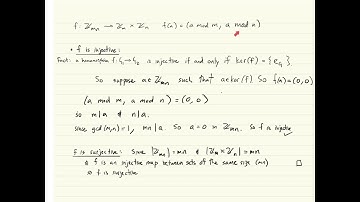 f: ℤmn → ℤm × ℤn f(a) = (a mod m, a mod n)
• f is injective:
Fact: a homomorphism f: G₁ → G₂ is injective if and only if ker(f) = {e_G₁}
So suppose a ∈ ℤmn such that a ∈ ker f So f(a) = (0,0)
(a mod m, a mod n) = (0,0)
so m|a & n|a.
since gcd(m,n) = 1, mn|a. So a = 0 in ℤmn. So f is injective
f is surjective: Since |ℤmn| = mn & |ℤm × ℤn| = mn
& f is an injective map between sets of the same size (mn)
so f is surjective □